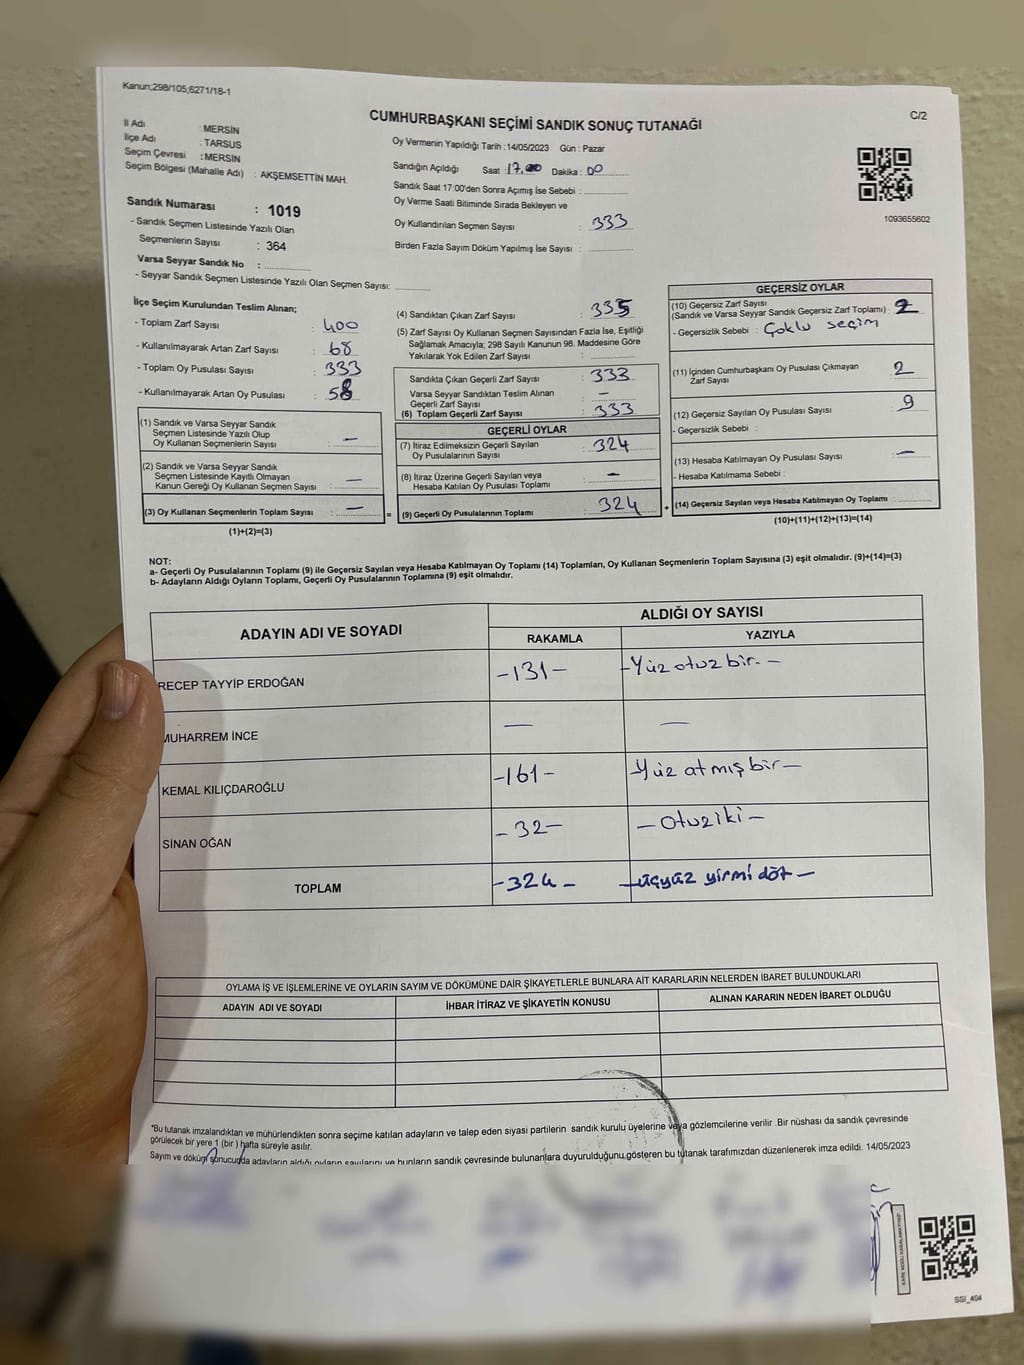 Kanun;298/105;6271/18-1
C/2
CUMHURBAŞKANI SEÇİMİ SANDIK SONUÇ TUTANAĞI
İl Adı : MERSİN
İlçe Adı : TARSUS
Seçim Çevresi : MERSİN
Seçim Bölgesi (Mahalle Adı) : AKŞEMSETTİN MAH.
Sandık Numarası : 1019
- Sandık Seçmen Listesinde Yazılı Olan
Seçmenlerin Sayısı : 364
Varsa Seyyar Sandık No :
- Seyyar Sandık Seçmen Listesinde Yazılı Olan Seçmen Sayısı:
Oy Vermenin Yapıldığı Tarih : 14/05/2023 Gün : Pazar
Sandığın Açıldığı Saat : 17.00 Dakika : 00
Sandık Saat 17:00'den Sonra Açımış İse Sebebi :
Oy Verme Saati Bitiminde Sırada Bekleyen ve
Oy Kullandırılan Seçmen Sayısı : 333
Birden Fazla Sayım Döküm Yapılmış İse Sayısı :
1093655602
İlçe Seçim Kurulundan Teslim Alınan;
- Toplam Zarf Sayısı : 400
- Kullanılmayarak Artan Zarf Sayısı : 68
- Toplam Oy Pusulası Sayısı : 333
- Kullanılmayarak Artan Oy Pusulası : 58
(1) Sandık ve Varsa Seyyar Sandık
Seçmen Listesinde Yazılı Olup
Oy Kullanan Seçmenlerin Sayısı : —
(2) Sandık ve Varsa Seyyar Sandık
Seçmen Listesinde Kayıtlı Olmayan
Kanun Gereği Oy Kullanan Seçmen Sayısı : —
(3) Oy Kullanan Seçmenlerin Toplam Sayısı : — =
(1)+(2)=(3)
(4) Sandıktan Çıkan Zarf Sayısı : 335
(5) Zarf Sayısı Oy Kullanan Seçmen Sayısından Fazla İse, Eşitliği
Sağlamak Amacıyla; 298 Sayılı Kanunun 98. Maddesine Göre
Yakılarak Yok Edilen Zarf Sayısı :
Sandıkta Çıkan Geçerli Zarf Sayısı : 333
Varsa Seyyar Sandıktan Teslim Alınan
Geçerli Zarf Sayısı : —
(6) Toplam Geçerli Zarf Sayısı : 333
GEÇERLİ OYLAR
(7) İtiraz Edilmeksizin Geçerli Sayılan
Oy Pusulalarının Sayısı : 324
(8) İtiraz Üzerine Geçerli Sayılan veya
Hesaba Katılan Oy Pusulası Toplamı : —
(9) Geçerli Oy Pusulalarının Toplamı : 324 +
GEÇERSİZ OYLAR
(10) Geçersiz Zarf Sayısı
(Sandık ve Varsa Seyyar Sandık Geçersiz Zarf Toplamı) : 2
- Geçersizlik Sebebi : Çoklu seçim
(11) İçinden Cumhurbaşkanı Oy Pusulası Çıkmayan
Zarf Sayısı : 2
(12) Geçersiz Sayılan Oy Pusulası Sayısı : 9
- Geçersizlik Sebebi :
(13) Hesaba Katılmayan Oy Pusulası Sayısı : —
- Hesaba Katılmama Sebebi :
(14) Geçersiz Sayılan veya Hesaba Katılmayan Oy Toplamı :
(10)+(11)+(12)+(13)=(14)
NOT:
a- Geçerli Oy Pusulalarının Toplamı (9) ile Geçersiz Sayılan veya Hesaba Katılmayan Oy Toplamı (14) Toplamları, Oy Kullanan Seçmenlerin Toplam Sayısına (3) eşit olmalıdır. (9)+(14)=(3)
b- Adayların Aldığı Oyların Toplamı, Geçerli Oy Pusulalarının Toplamına (9) eşit olmalıdır.
ADAYIN ADI VE SOYADI
ALDIĞI OY SAYISI
RAKAMLA YAZIYLA
RECEP TAYYİP ERDOĞAN -131- -Yüz otuz bir.-
MUHARREM İNCE — —
KEMAL KILIÇDAROĞLU -161- -Yüz atmış bir-
SİNAN OĞAN -32- -Otuziki-
TOPLAM -324- -üçyüz yirmi döt-
OYLAMA İŞ VE İŞLEMLERİNE VE OYLARIN SAYIM VE DÖKÜMÜNE DAİR ŞİKAYETLERLE BUNLARA AİT KARARLARIN NELERDEN İBARET BULUNDUKLARI
ADAYIN ADI VE SOYADI İHBAR İTİRAZ VE ŞİKAYETİN KONUSU ALINAN KARARIN NEDEN İBARET OLDUĞU
*Bu tutanak imzalandıktan ve mühürlendikten sonra seçime katılan adayların ve talep eden siyasi partilerin sandık kurulu üyelerine veya gözlemcilerine verilir .Bir nüshası da sandık çevresinde
görülecek bir yere 1 (bir ) hafta süreyle asılır.
Sayım ve döküm sonucunda adayların aldığı oyların sayılarını ve bunların sandık çevresinde bulunanlara duyurulduğunu gösteren bu tutanak tarafımızdan düzenlenerek imza edildi. 14/05/2023
SSI_404